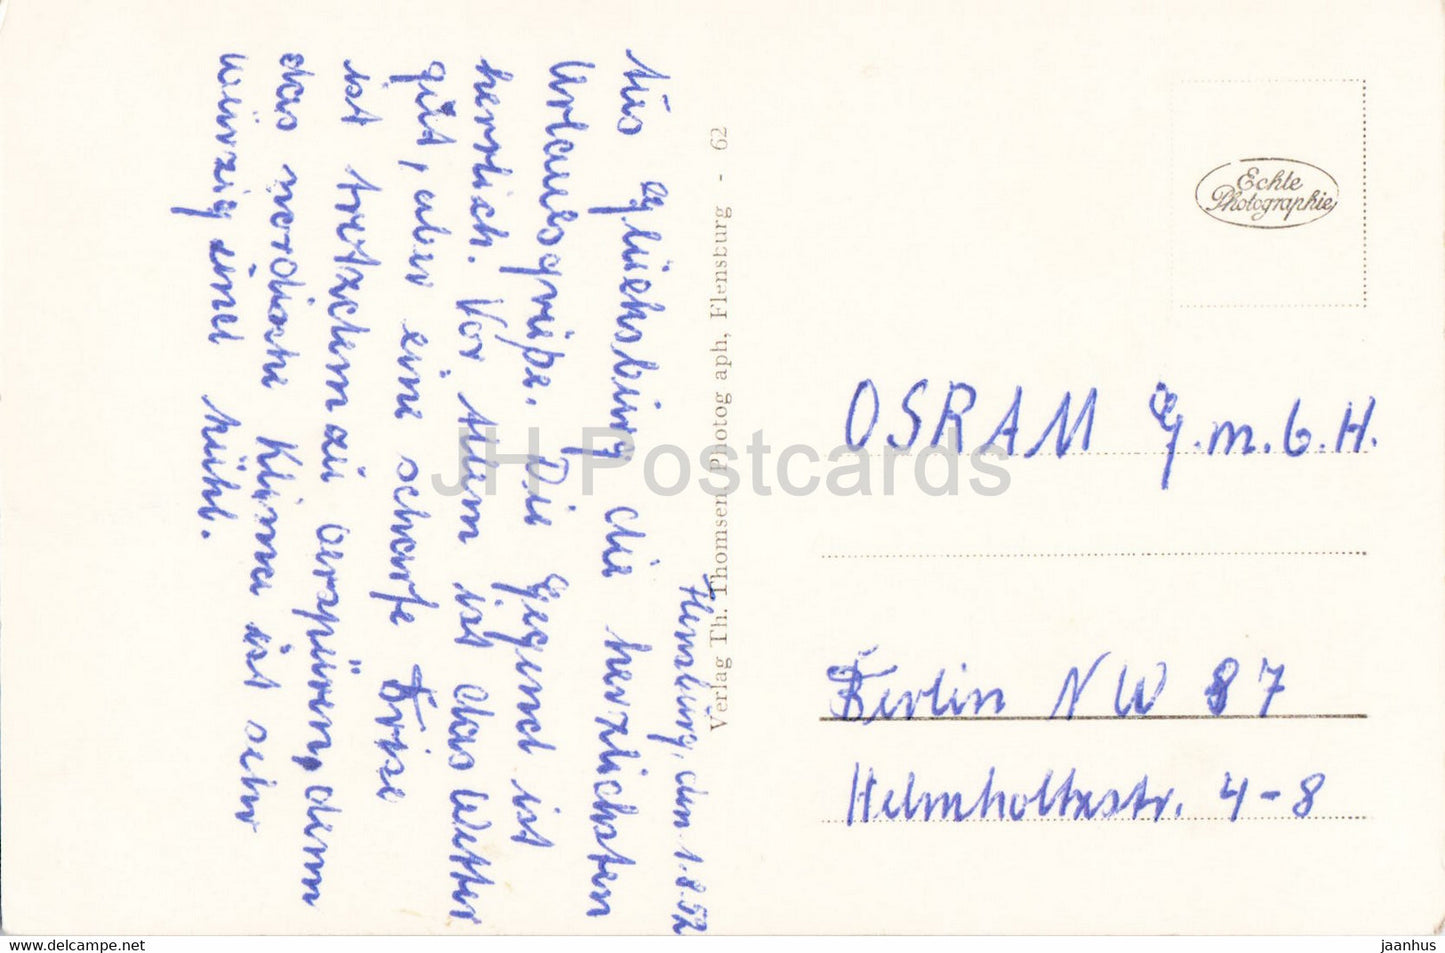 Flensburg, den 1.8.52
Aus Glücksburg die herzlichsten
Urlaubsgrüße. Die Gegend ist
herrlich. Vor Allem ist das Wetter
gut, aber eine scharfe Brise
ist trotzdem zu verspüren, denn
das nordische Klima ist sehr
würzig und kühl.
Verlag Th. Thomsen Photog aph, Flensburg - 62
Echte
Photographie
OSRAM G.m.b.H.
Berlin NW 87
Helmholtzstr. 4-8
JH Postcards
www.delcampe.net
jaanhus